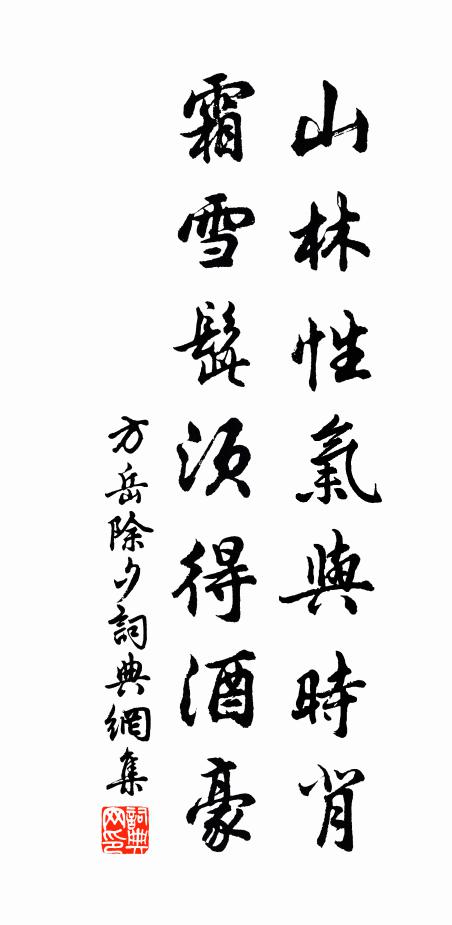 山林性氣與時背
霜雪髭須得酒豪
方岳除夕詞典網集
詞典網印